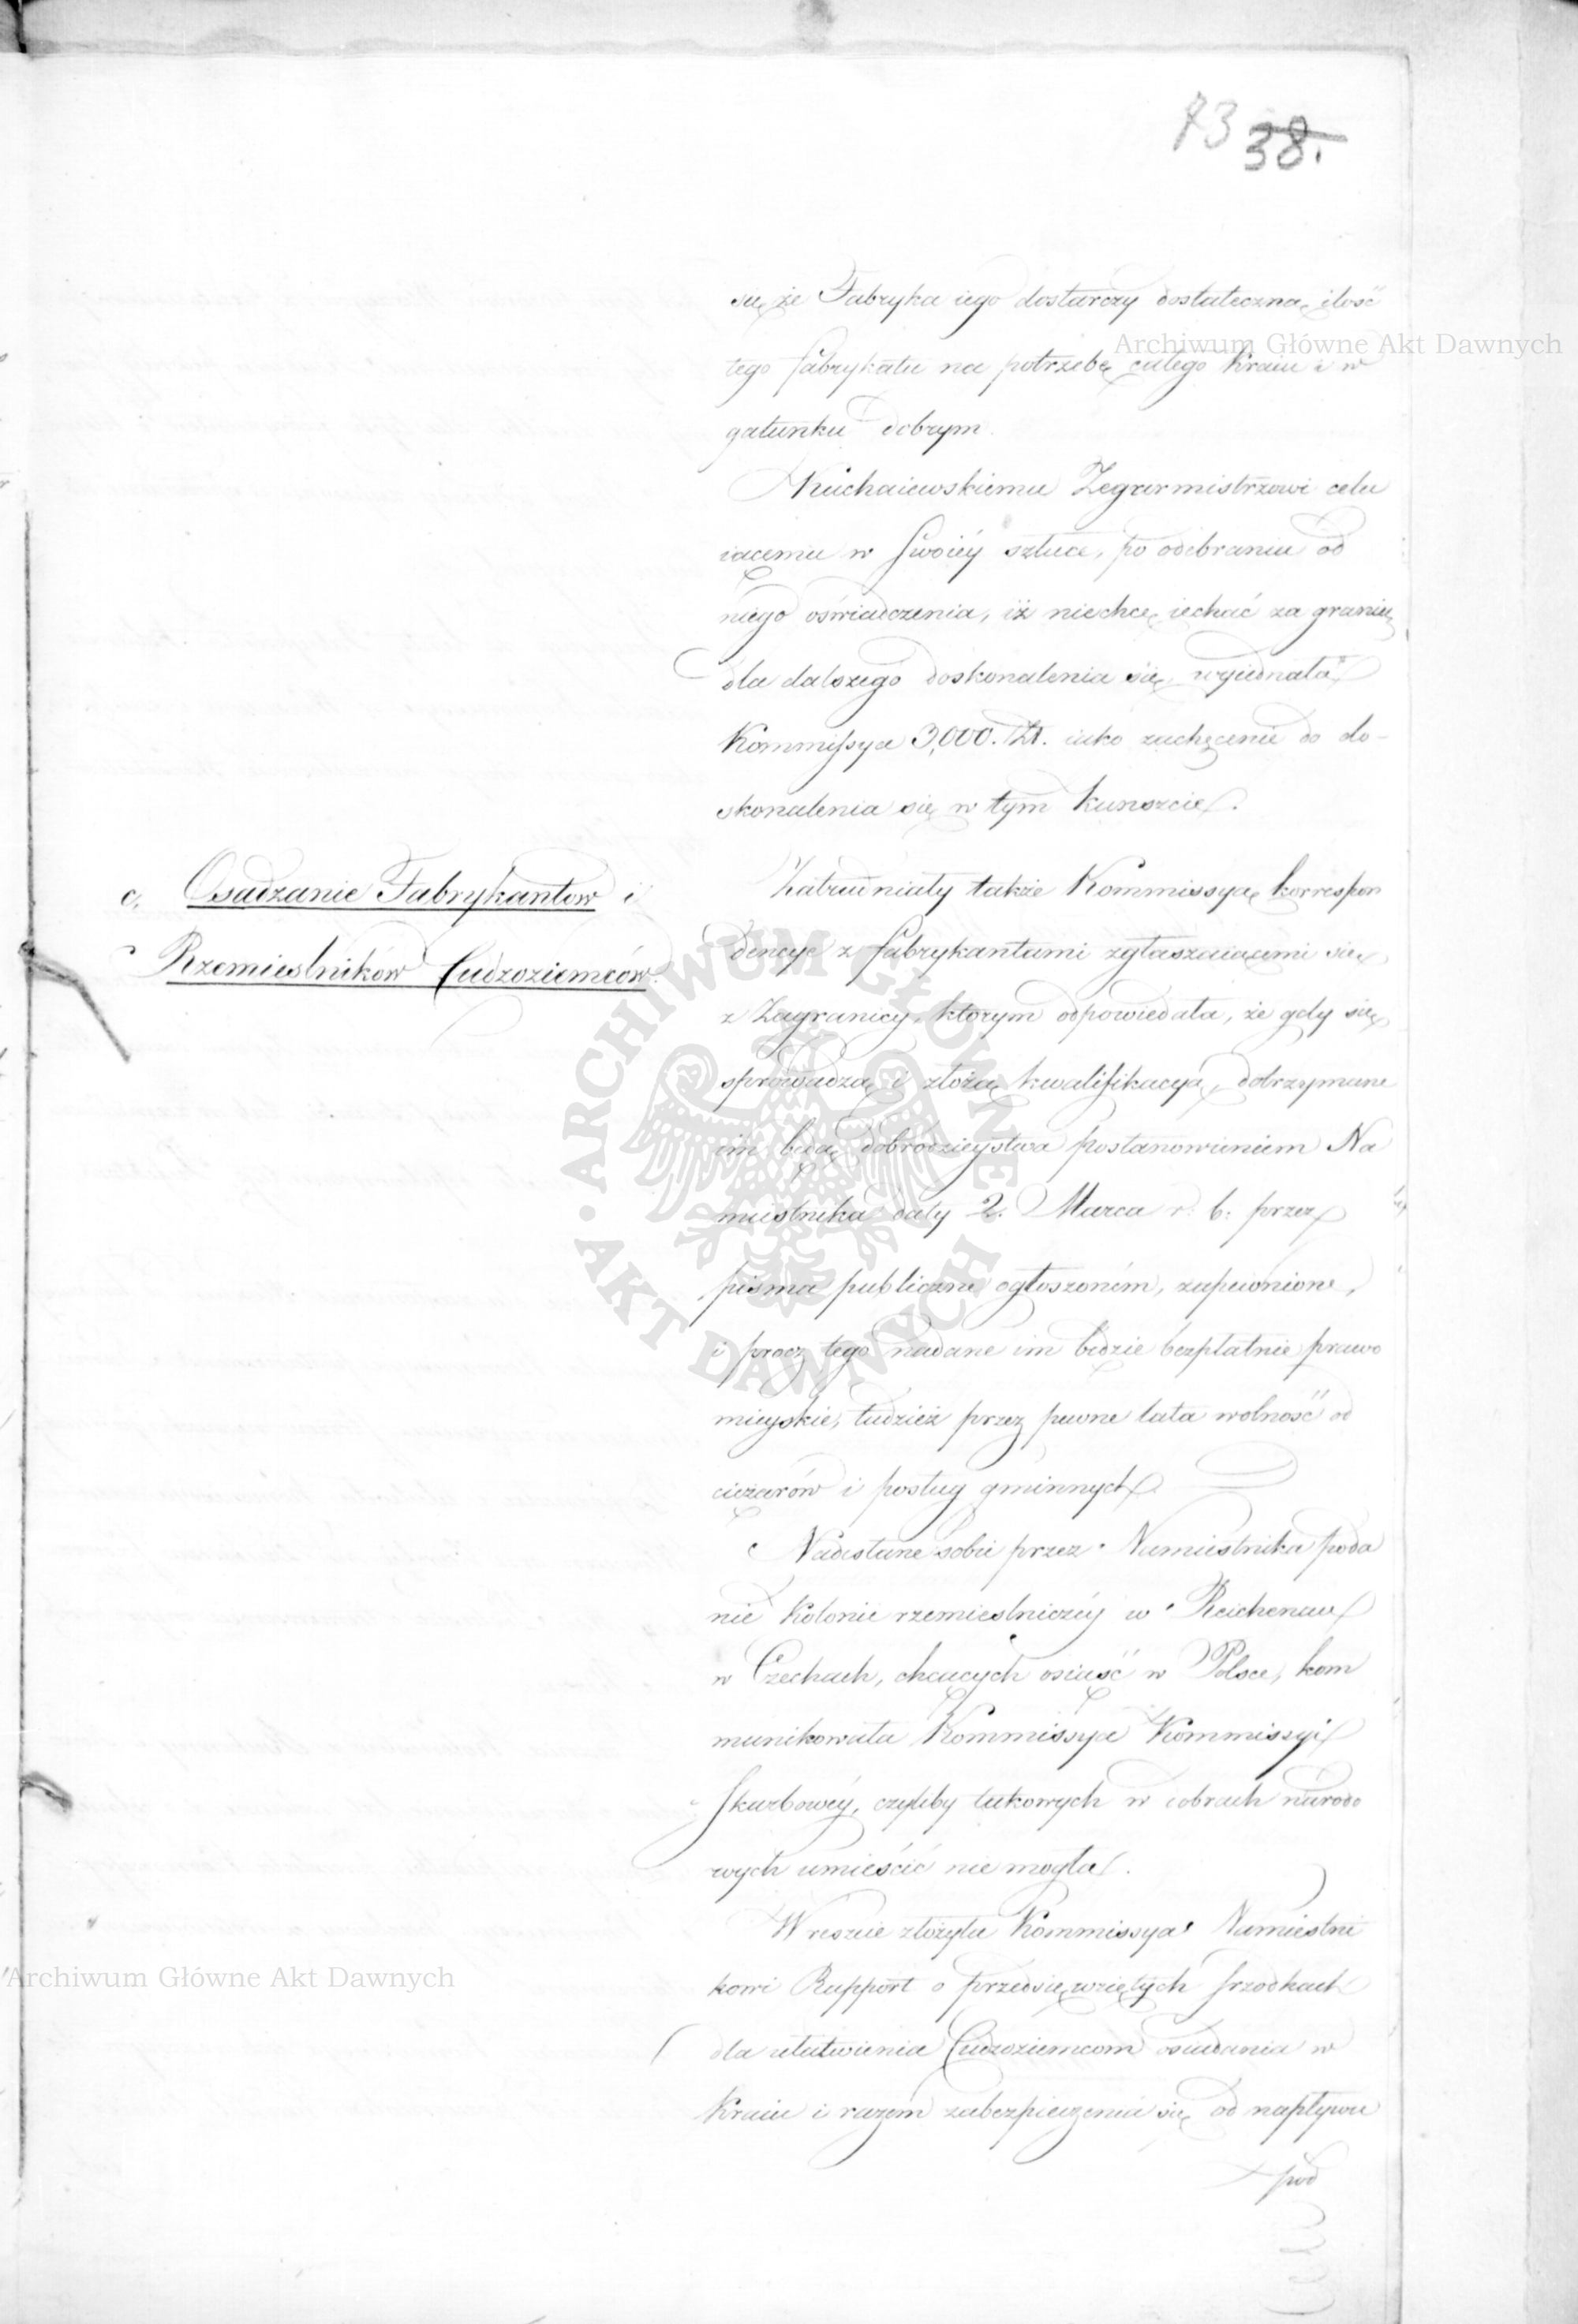 73 38.
się że Fabryka iego dostarczy dostateczną ilość
tego fabrykatu na potrzebę całego Kraiu i w
gatunku dobrym.
Kuchaiewskiemu Zegarmistrzowi celu
iącemu w Swoiéy sztuce, po odebraniu od
niego oświadczenia, iż niechce iechać za granicę
dla dalszego doskonalenia się wyiednała
Kommissya 3,000. Zł. iako zachęcenie do do-
skonalenia się w tym kunszcie.
c. Osadzanie Fabrykantow i
Rzemieslników Cudzoziemców.
Zatrudniały także Kommissyą korrespon
dencye z fabrykantami zgłaszaiącemi się
z Zagranicy, ktorym odpowiedała, że gdy się
sprowadzą i złożą kwalifikacyą, dotrzymane
im będą dobrodzieystwa postanowieniem Na
miestnika daty 2. Marca r. b. przez
pisma publiczne ogłoszoném, zapewnione,
i procz tego nadane im będzie bezpłatnie prawo
mieyskie, tudzież przez pewne lata wolność od
ciężarów i posług gminnych.
Nadesłane sobie przez Namiestnika poda
nie Kolonii rzemieslniczéy w Reichenau
w Czechach, chcących osiąść w Polsce, kom
munikowała Kommissya Kommissyi
Skarbowéy, czyliby takowych w dobrach narodo
wych umieścić nie mogła.
Wreszcie złożyła Kommissya Namiestni
kowi Rapport o przedsięwziętych srzodkach
dla ułatwienia Cudzoziemcom osiadania w
Kraiu i razem zabezpieczenia się od napływu
pod
Archiwum Główne Akt Dawnych
ARCHIWUM GŁÓWNE AKT DAWNYCH
Archiwum Główne Akt Dawnych